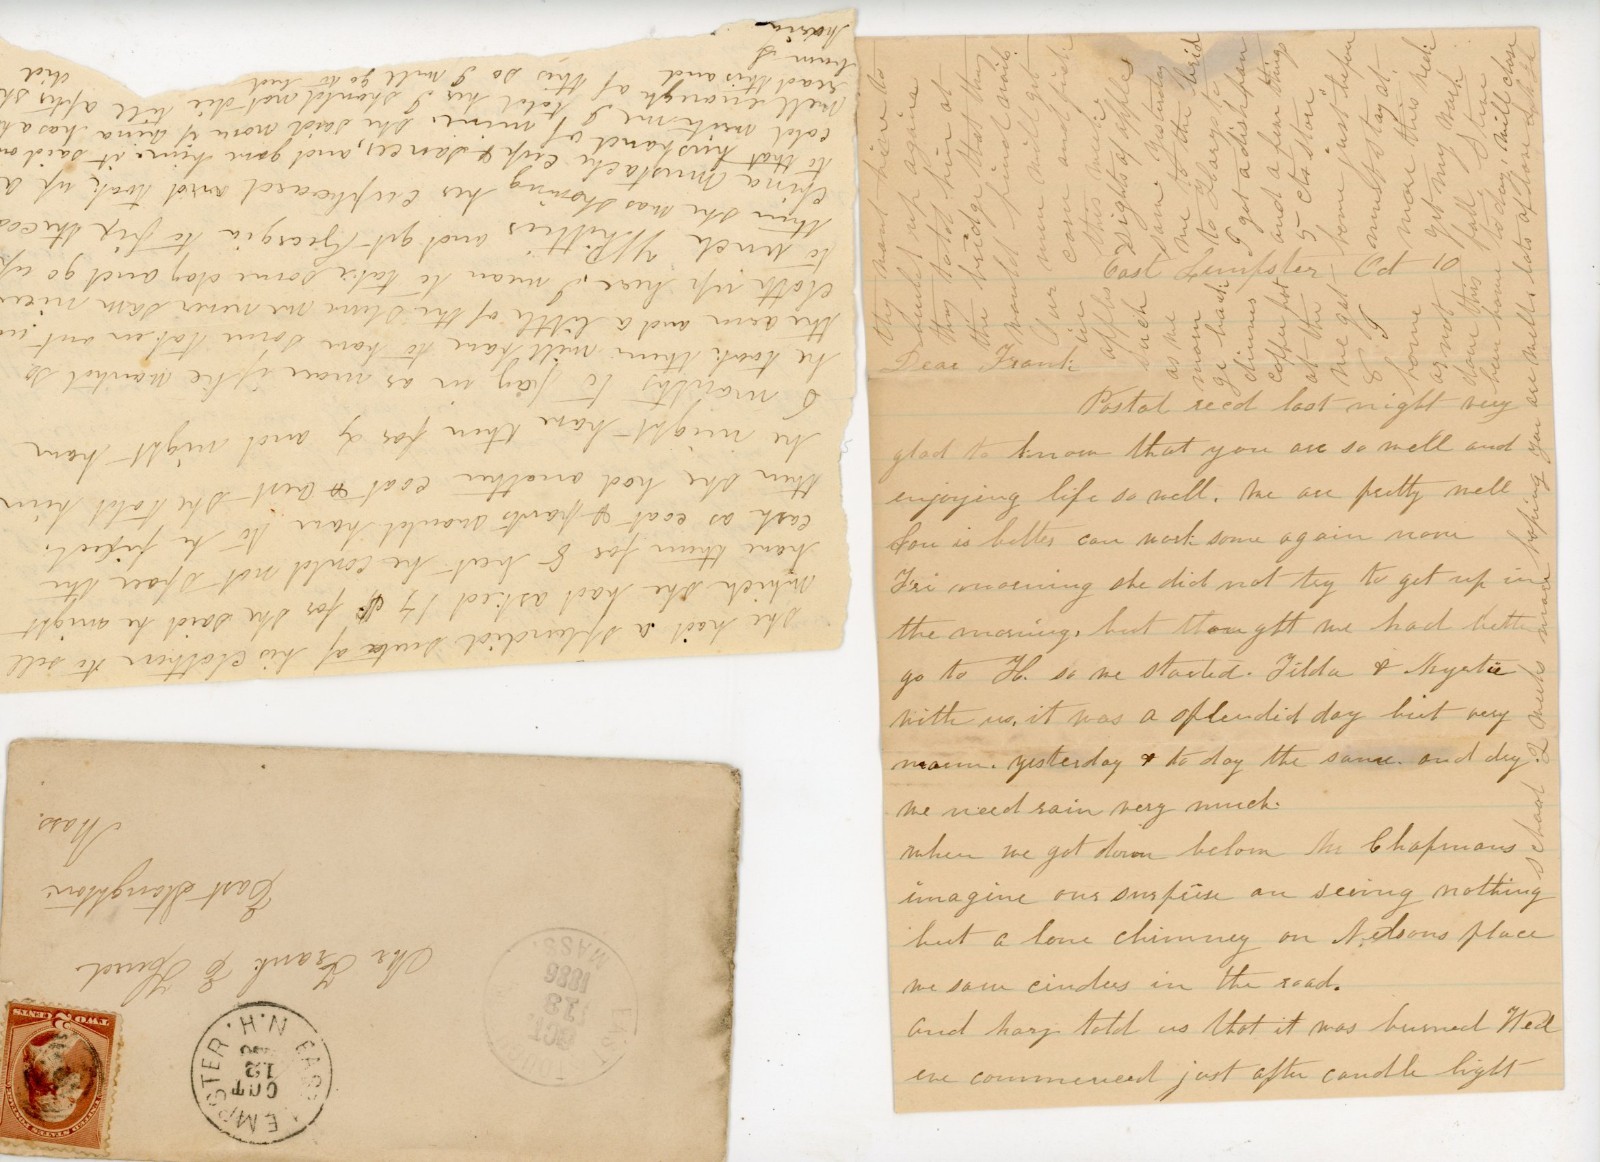 East Lempster Oct 10
Dear Frank
Postal recd last night very
glad to know that you are so well and
enjoying life so well. We are pretty well
Lou is better can work some again now
Fri morning she did not try to get up in
the morning, but thought we had better
go to H. so we started. Tilda & Myrtie
with us, it was a splendid day but very
warm. yesterday & to day the same. and dry.
we need rain very much.
when we got down below Mr Chapmans
imagine our surprise on seeing nothing
but a lone chimney on Nelsons place
we saw cinders in the road.
and Harz told us that it was burned Wed
eve commenced just after candle light
they
again
they told him at
the bridge that they
would find out
Our men will get
in corn and pick
apples this week
such sights of apples
as we saw yesterday
mom me to the
go back to Harzs to
dinner I got a dishpan
coffee pot and a few things
at the 5 cts store
we got home just before
8 I must stay at
home more this week
as not got my work
done this fall, I have
been home to day, will close
hoping you are well & lots of love
school 2 weeks more
she had a splendid suit of his clothes to sell
which she had asked 14 $ for she said he might
have them for 8 but he could not spare the
cash as coat & pants would have to be fixed.
then she had another coat & vest she told him
he might have them for 4 and might have
6 months to pay in as more if he wanted so
he took them will have to have some taken out
the arm and a little of the
cloth up here, I mean to take some day and go up
to Whittiers and get Georgia to fix
then she was showing her cupboard and took up a
china mustache cup & saucer, and gave him. it said on
to that husband of mine. she said
cold with me, I told her I should not die till after
well enough of this so I will go to bed
read this and
burn I
Maria
Mr Frank E Hurd
East Stoughton
Mass.
EAST LEMPSTER N.H.
OCT
12
EAST STOUGHTON MASS.
OCT
13
1886
UNITED STATES POSTAGE
TWO 2 CENTS